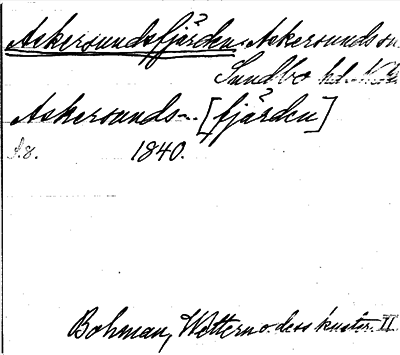 Askersundsfjärden. Askersunds sn
Sundbo hd.
Askersunds~. [fjärden]
S.8. 1840.
Bohman, Wettern o. dess kuster. II